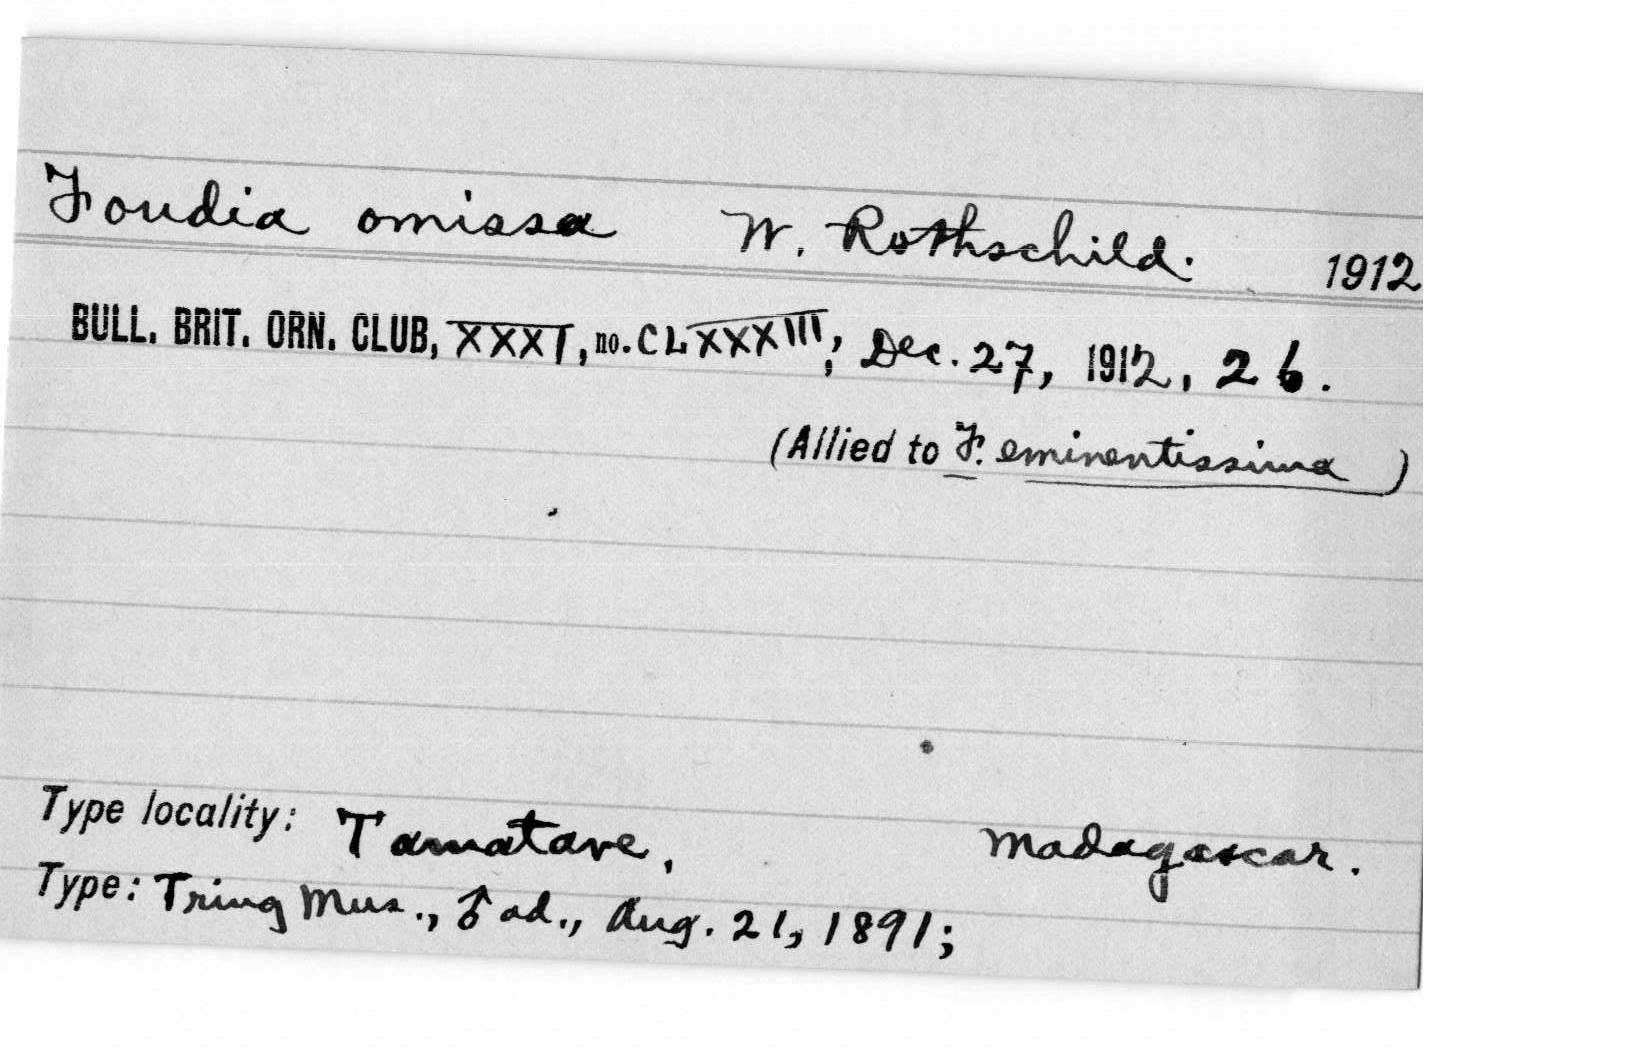 Foudia omissa W. Rothschild. 1912
BULL. BRIT. ORN. CLUB, XXXI, no. CLXXXIII; Dec. 27, 1912, 26.
(Allied to F. eminentissima)
Type locality: Tamatave, Madagascar.
Type: Tring Mus., ♂ ad., Aug. 21, 1891;